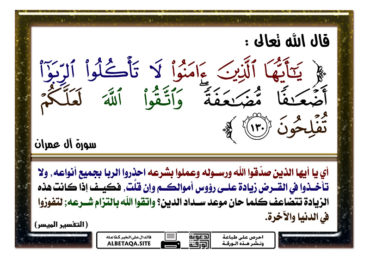 قال الله تعالى :
﴿ يَٰٓأَيُّهَا ٱلَّذِينَ ءَامَنُواْ لَا تَأۡكُلُواْ ٱلرِّبَوٰٓاْ
أَضۡعَٰفٗا مُّضَٰعَفَةٗۖ وَٱتَّقُواْ ٱللَّهَ لَعَلَّكُمۡ
تُفۡلِحُونَ ١٣٠ ﴾
سورة آل عمران
أي يا أيها الذين صدَّقوا الله ورسوله وعملوا بشرعه احذروا الربا بجميع أنواعه، ولا
تأخذوا في القرض زيادة على رؤوس أموالكم وإن قلَّت، فكيف إذا كانت هذه
الزيادة تتضاعف كلما حان موعد سداد الدين؟ واتقوا الله بالتزام شرعه؛ لتفوزوا
في الدنيا والآخرة.
( التفسير الميسر )
احرص على طباعة
ونشر هذه الورقة
الدال على الخير كفاعله
ALBETAQA.SITE